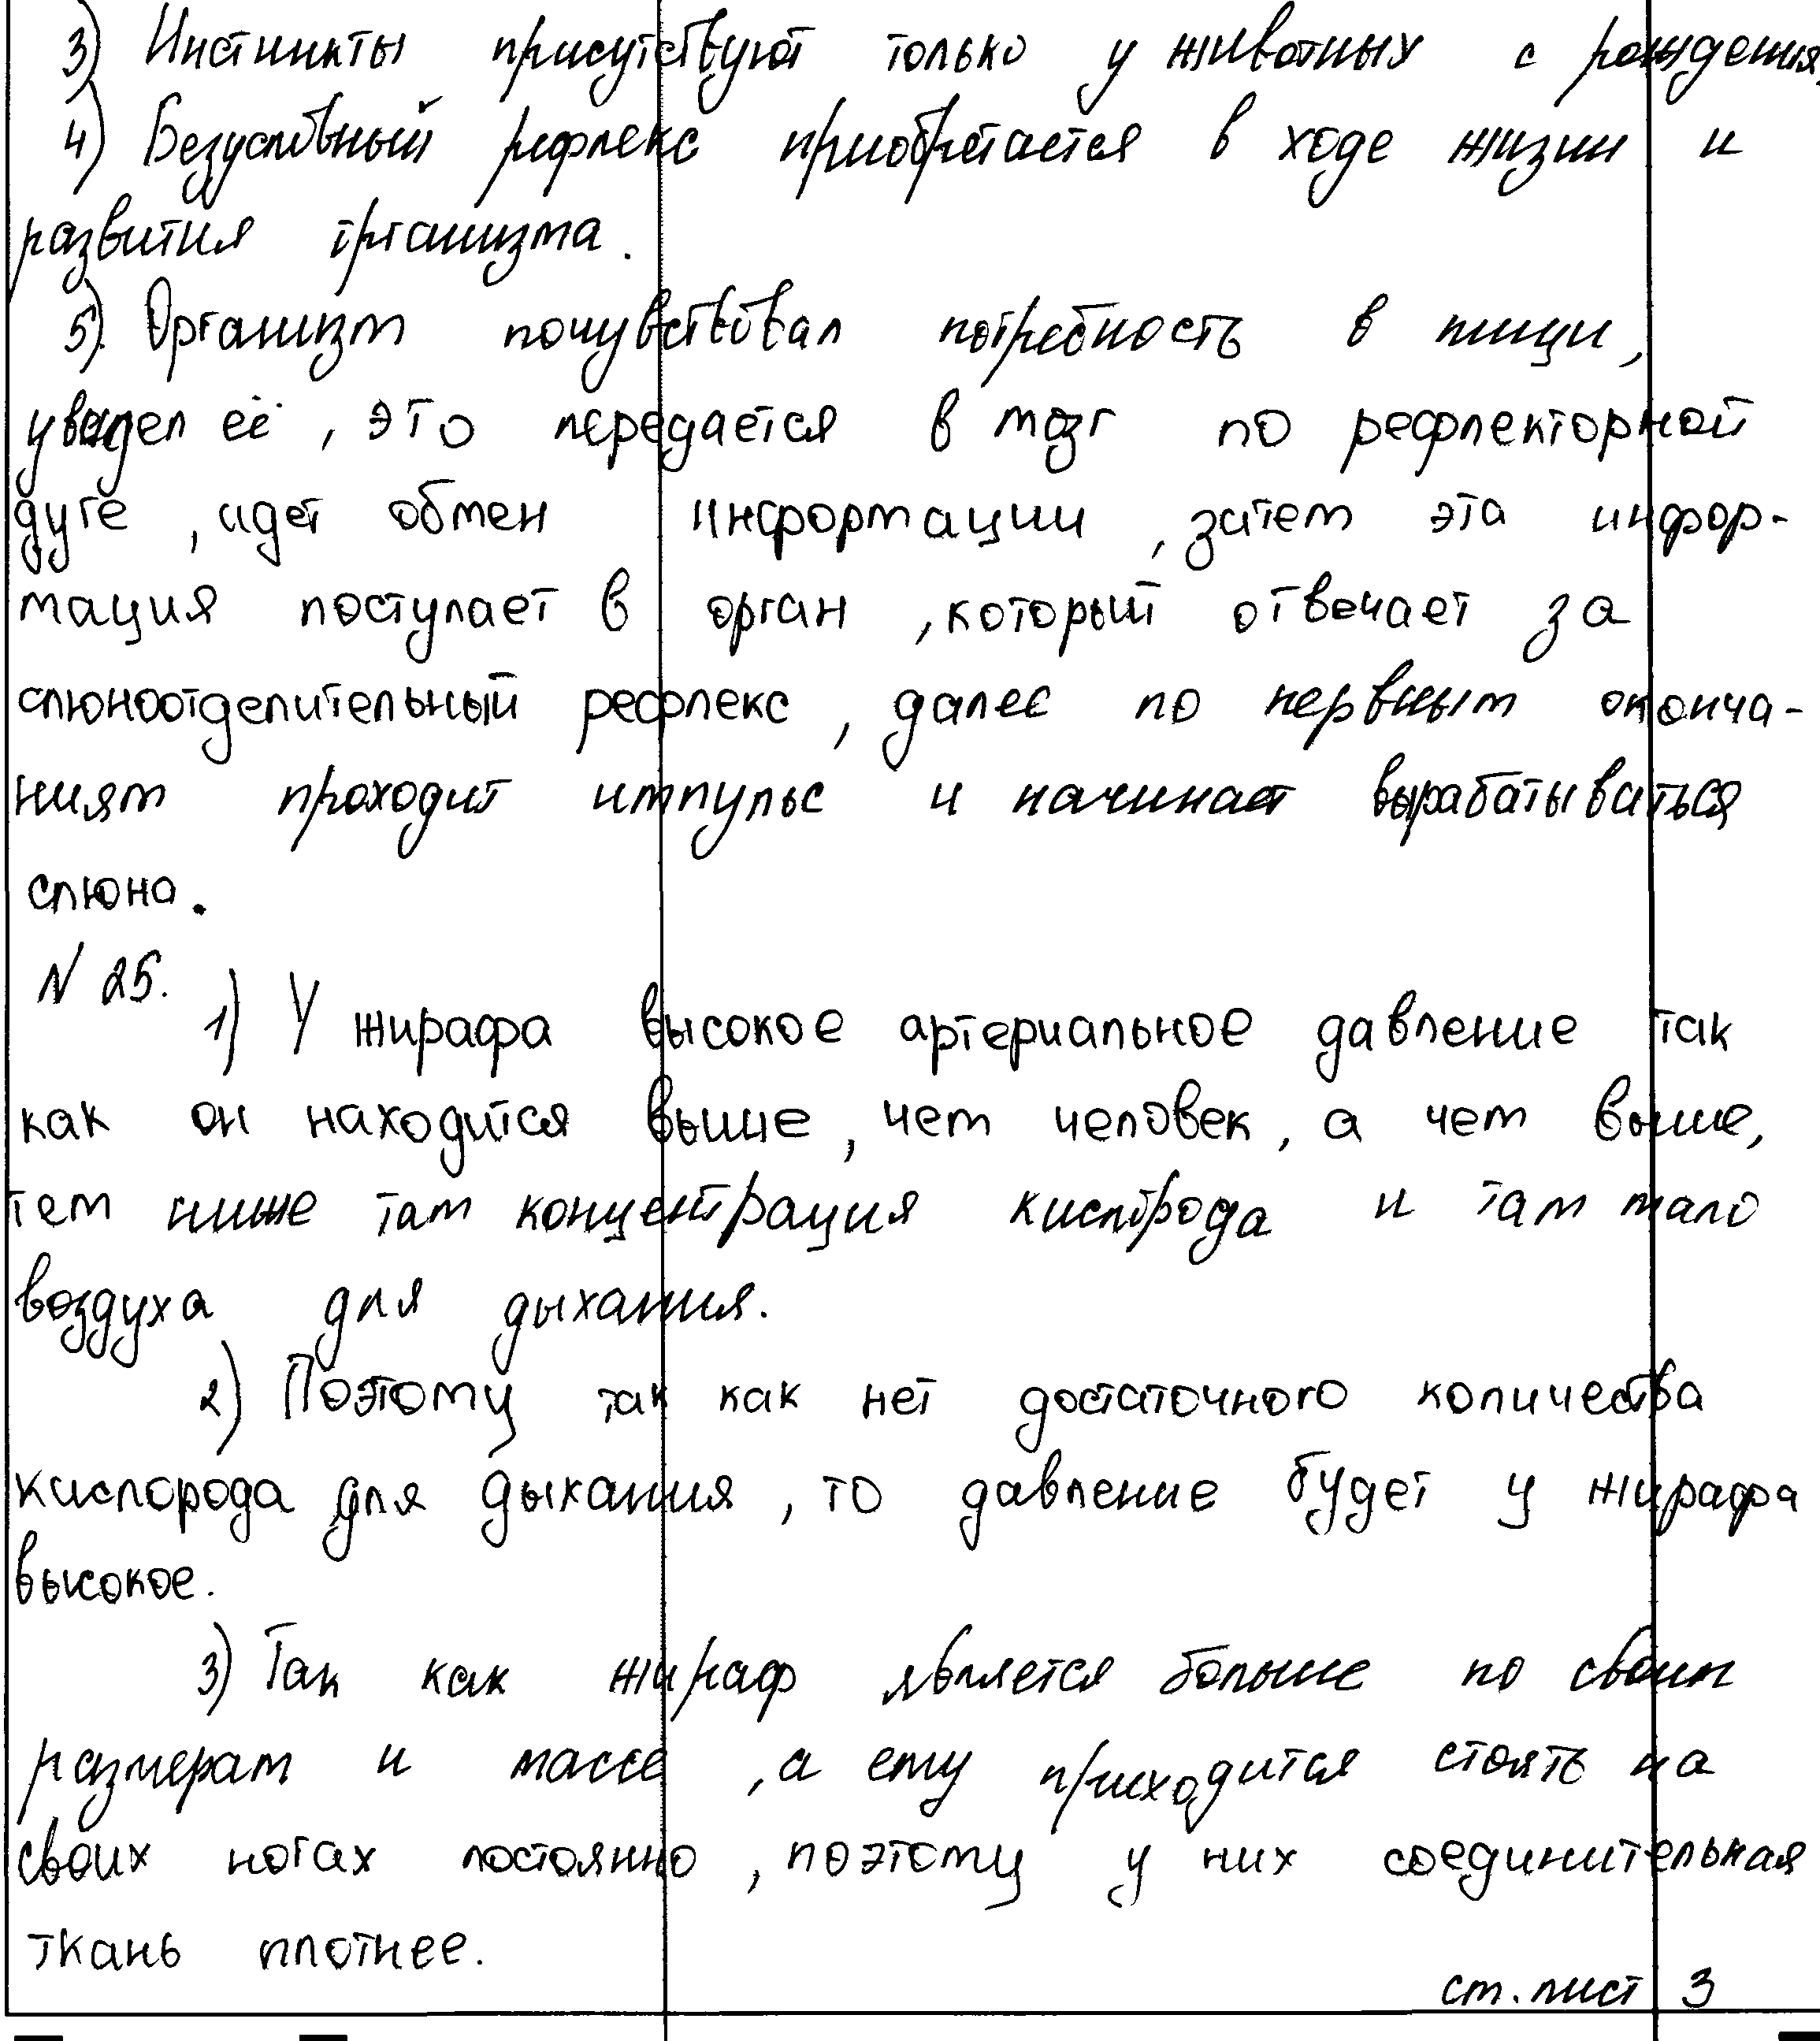 3) Инстинкты присутствуют только у животных с рождения,
4) Безусловный рефлекс приобретается в ходе жизни и
развития организма.
5) Организм почувствовал потребность в пищи,
увидел её, это передаётся в мозг по рефлекторной
дуге, идет обмен информации, затем эта инфор-
мация поступает в орган, который отвечает за
слюноотделительный рефлекс, далее по нервным оконча-
ниям проходит импульс и начинает вырабатываться
слюна.
N 25.
1) У жирафа высокое артериальное давление так
как он находится выше, чем человек, а чем выше,
тем ниже там концентрация кислорода и там мало
воздуха для дыхания.
2) Поэтому так как нет достаточного количества
кислорода для дыхания, то давление будет у жирафа
высокое.
3) Так как жираф является больше по своим
размерам и массе, а ему приходится стоять на
своих ногах постоянно, поэтому у них соединительная
ткань плотнее.
см. лист 3